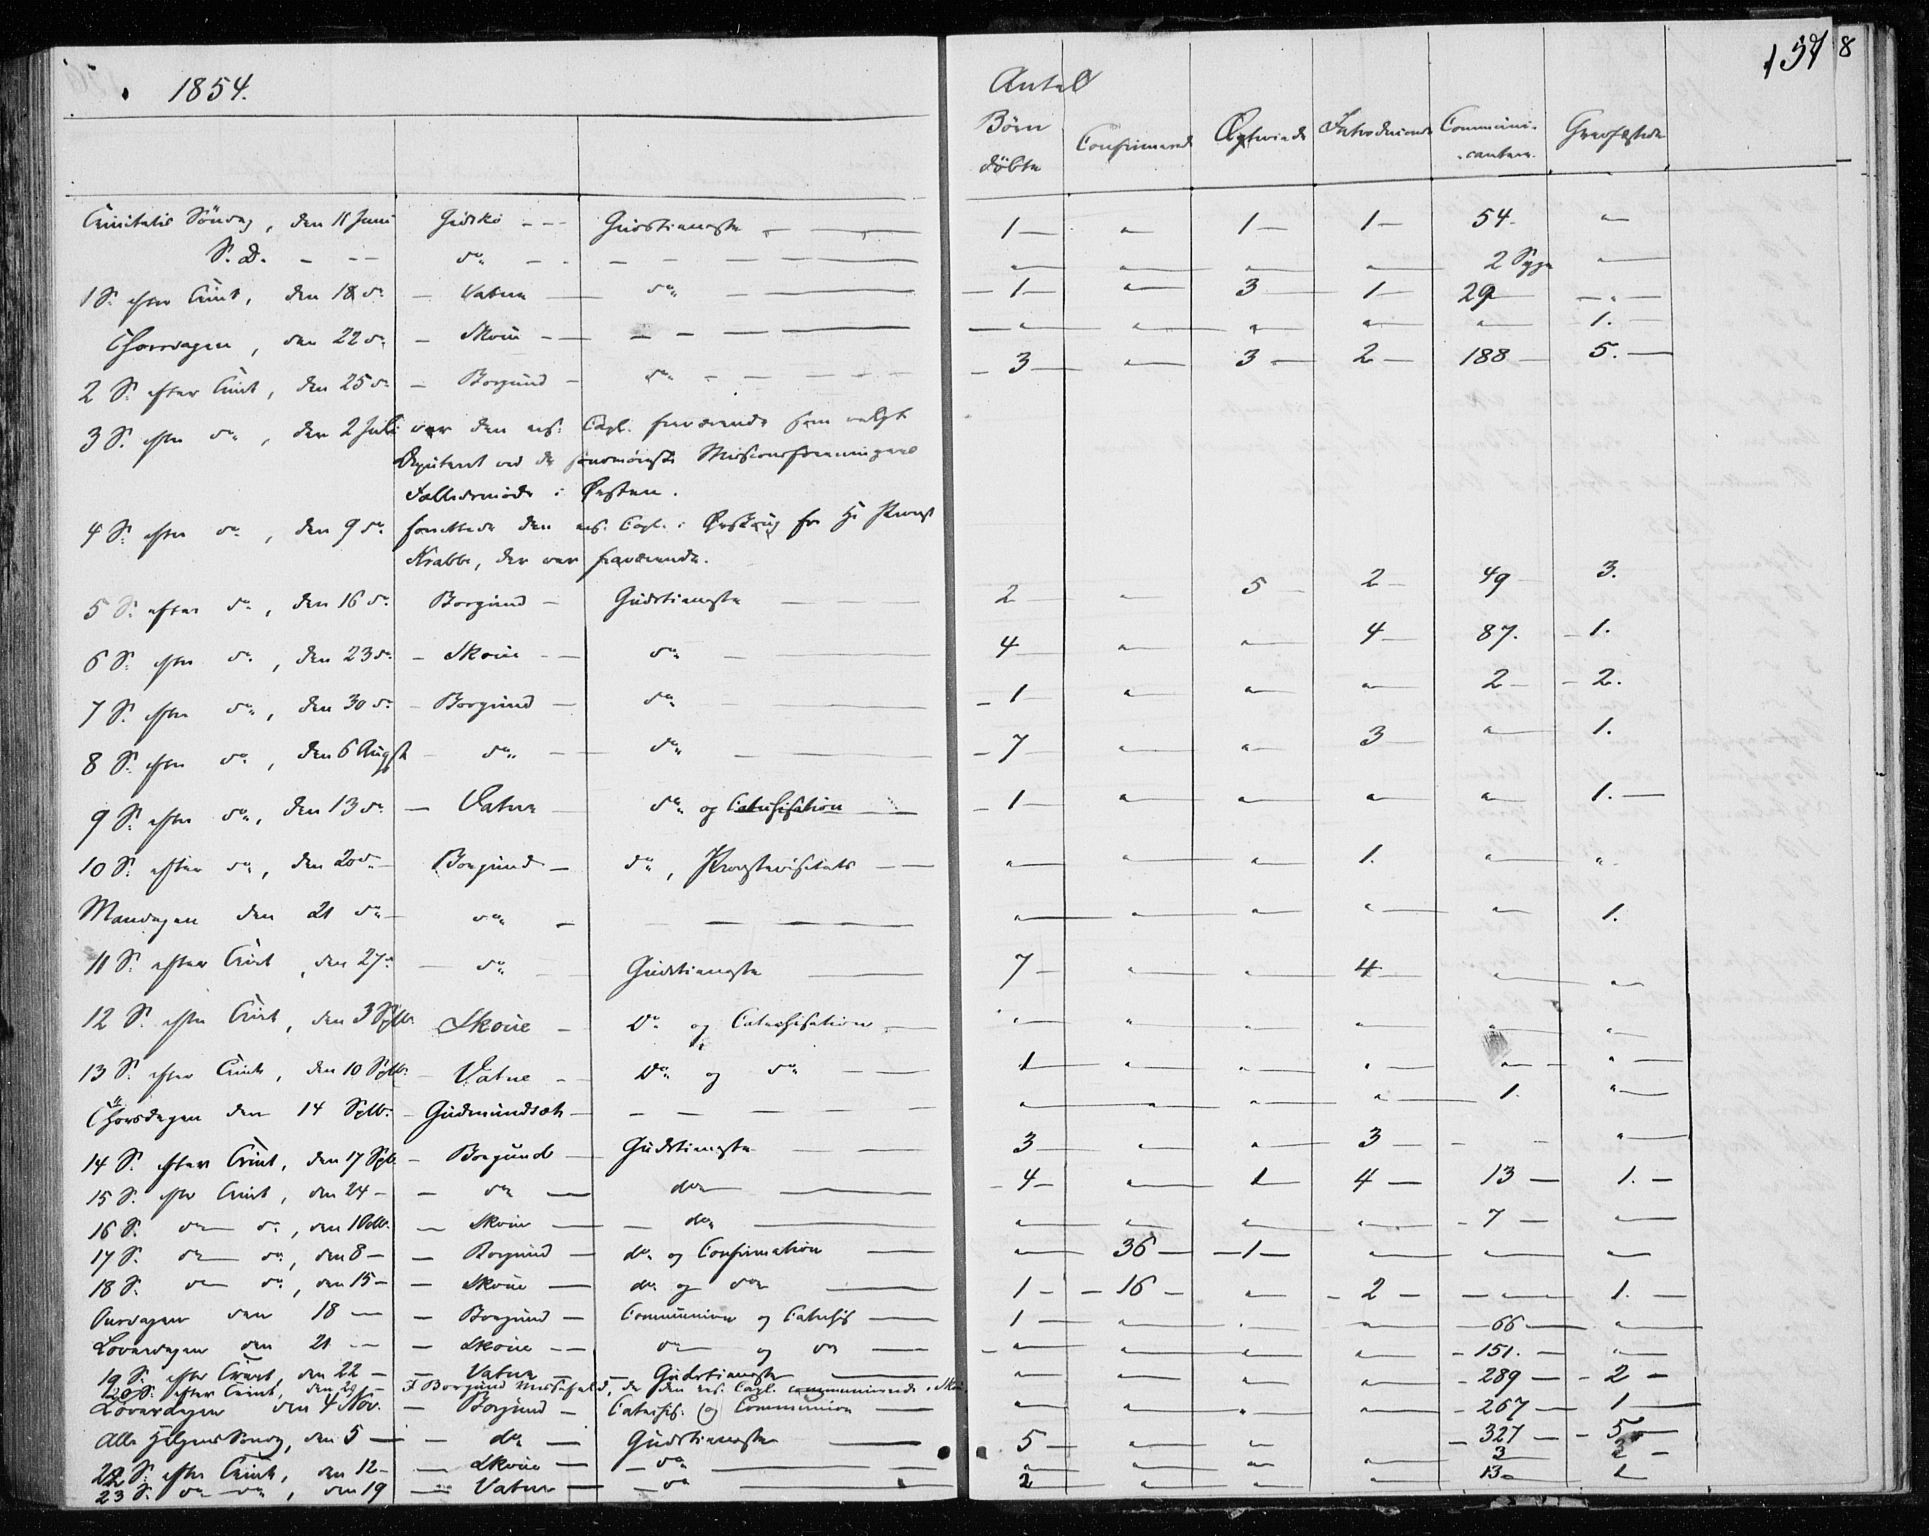 1854.
137 8
Antal
Børn døbte | Confirmerede | Ægteviede | Introducerede | Communi-cantere | Gravfæstede
Trinitatis Söndag, den 11 Juni | Gidskö | Gudstieneste | 1 | " | 1 | 1 | 54 | "
S. D. | do | " | " | " | " | 2 Syge | "
1 S. efter Trint, den 18 do | Vatne | do | 1 | " | 3 | 1 | 29 | "
Thorsdagen, den 22 do | Skoue | " | " | " | " | " | 1.
2 S. efter Trint, den 25 do | Borgund | do | 3 | " | 3 | 2 | 188 | 5.
3 S. efter do, den 2 Juli var den res. Capl. fraværende som valgt
Deputeret ved de søndmørske Missionsforeningers
Fællesmøde i Ørsten.
4 S. efter do, den 9 do forrettede den res. Capl. i Ørskoug for Hr Provst
Krabbe, der var fraværende.
5 S. efter do, den 16 do | Borgund | Gudstieneste | 2 | " | 5 | 2 | 49 | 3.
6 S. efter do, den 23 do | Skoue | do | 4 | " | " | 4 | 87. | 1.
7 S. efter do, den 30 do | Borgund | do | 1 | " | " | " | 2 | 2.
8 S. efter do, den 6 Augst | do | do | 7 | " | " | 3 | " | 1.
9 S. efter do, den 13 do | Vatne | do og Catechisation | 1 | " | " | " | " | 1.
10 S. efter do, den 20 do | Borgund | do, Provstevisitats | " | " | " | 1. | " | "
Mandagen den 21 do | do | " | " | " | " | " | 1.
11 S. efter Trint, den 27 do | do | Gudstieneste | 7 | " | " | 4 | " | "
12 S. efter Trint, den 3 Sptb. | Skoue | Do og Catechisation | " | " | " | " | " | "
13 S. efter Trint, den 10 Sptb. | Vatne | Do og do | 1 | " | " | " | " | "
Thorsdagen den 14 Sptb. | Gudmundsæt | " | " | " | " | 1. | "
14 S. efter Trint, den 17 Spt. | Borgund | Gudstieneste | 3 | " | " | 3 | - | "
15 S. efter Trint, den 24 | do | do | 4 | " | 1 | 4 | 13 | 1.
16 S. do do, den 1 Octb. | Skoue | do | " | " | " | " | 7 | "
17 S. do do, den 8 | Borgund | do og Confirmation | " | 36 | 1 | " | " | "
18 S. do do, den 15 | Skoue | do og do | 1 | 16 | " | 2 | " | 1.
Onsdagen den 18 | Borgund | Communion og Catechis | 1 | " | " | " | 66 | "
Løverdagen den 21 | Skoue | do og do | " | " | " | " | 151. | "
19 S. efter Trint, den 22 | Vatne | Gudstieneste | " | " | " | " | 289 | 2
20 S. efter Trint, den 29 | I Borgund Messefald, da den res. Capl. communicerede i Skou
Løverdagen den 4 Nov. | Borgund | Catechis. og Communion | " | " | " | " | 267 | 1
Alle Helgens Søndag, den 5 | do | Gudstieneste | 5 | " | " | 327 | 5
22 S. efter Trint, den 12 | Skoue | do | " | " | " | " | 3 | 3
23 S. do do, den 19 | Vatne | do | 2 | " | " | " | 13 | 1